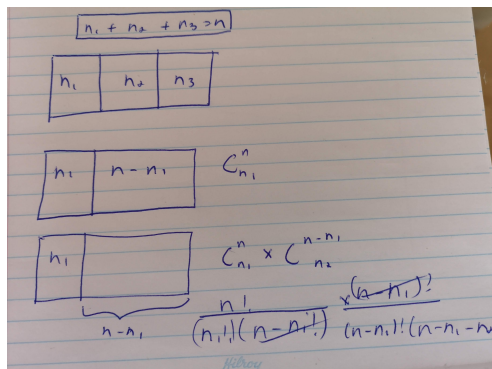 n₁ + n₂ + n₃ = n
n₁ n₂ n₃
n₁ n - n₁ Cⁿn₁
n₁ Cⁿn₁ × Cⁿ⁻ⁿ¹n₂
n - n₁
n! / (n₁!)(n - n₁!) × (n - n₁)! / (n - n₁)! (n - n₁ - n
Hilroy